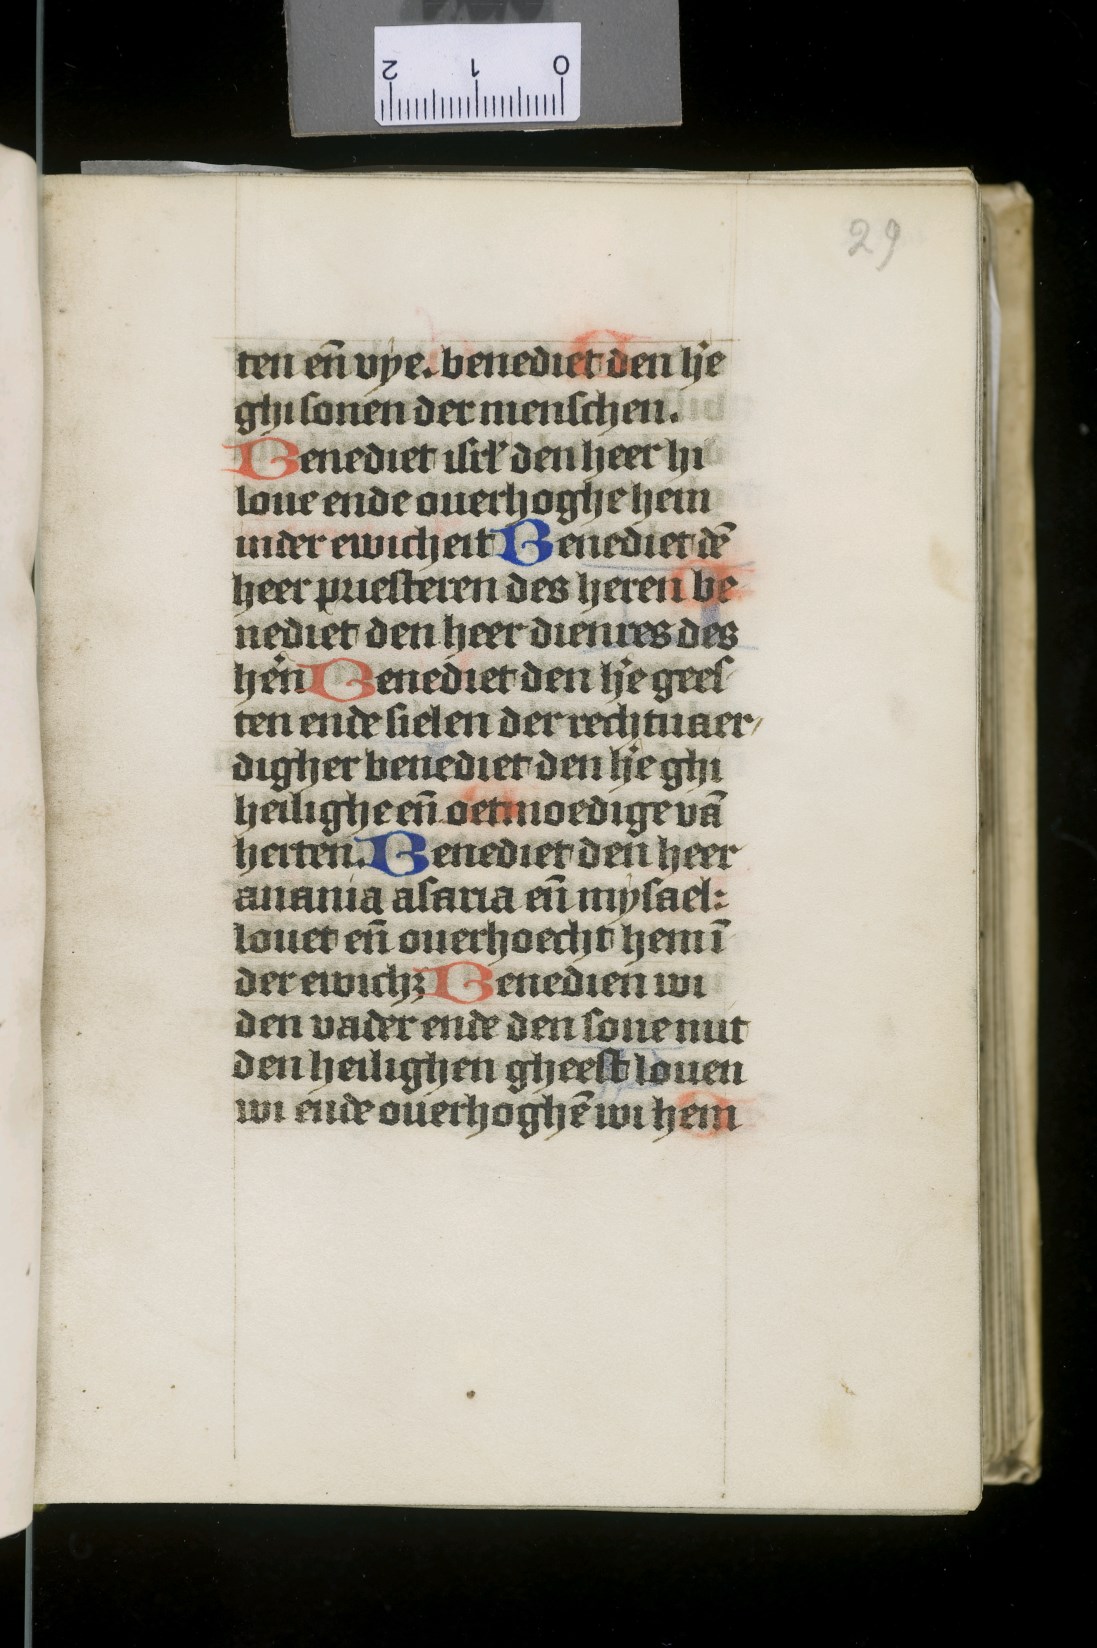 2 1 0
29
ten en̄ vye. benediet den h'e
ghi sonen der menschen.
Benediet isrl' den heer hi
loue ende ouerhoghe hem
inder ewicheit Benediet dē
heer priesteren des heren be
nediet den heer dienres des
he'n Benediet den h'e gees
ten ende sielen der rechtuaer
digher benediet den h'e ghi
heilighe en̄ oetmoedige vā
herten. Benediet den heer
anania asaria en̄ mysael:
louet en̄ ouerhoecht hem ī
der ewichꝫ Benedien wi
den vader ende den sone mit
den heilighen gheest louen
wi ende ouerhoghē wi hem